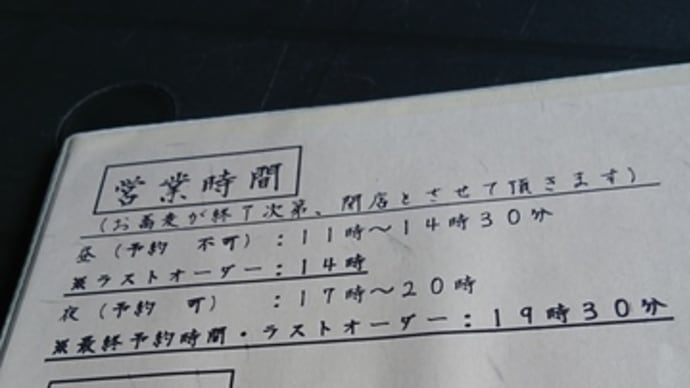 営業時間
(お蕎麦が終了次第、閉店とさせて頂きます)
昼(予約 不可):11時~14時30分
※ラストオーダー:14時
夜(予約 可) :17時~20時
※最終予約時間・ラストオーダー:19時30分